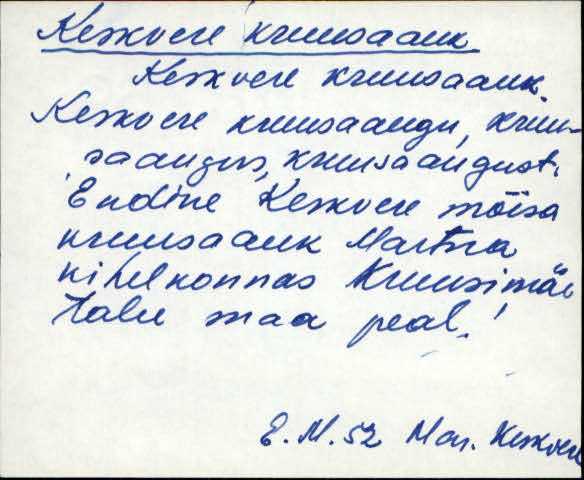 Keskvere kruusaauk
Keskvere kruusaauk.
Keskvere kruusaaugu, kruu-
saaugus, kruusaaugust.
Endine Keskvere mõisa
kruusaauk Martna
kihelkonnas Kruusimäe
talu maa peal.
E. M. 52 Mar. Keskvere